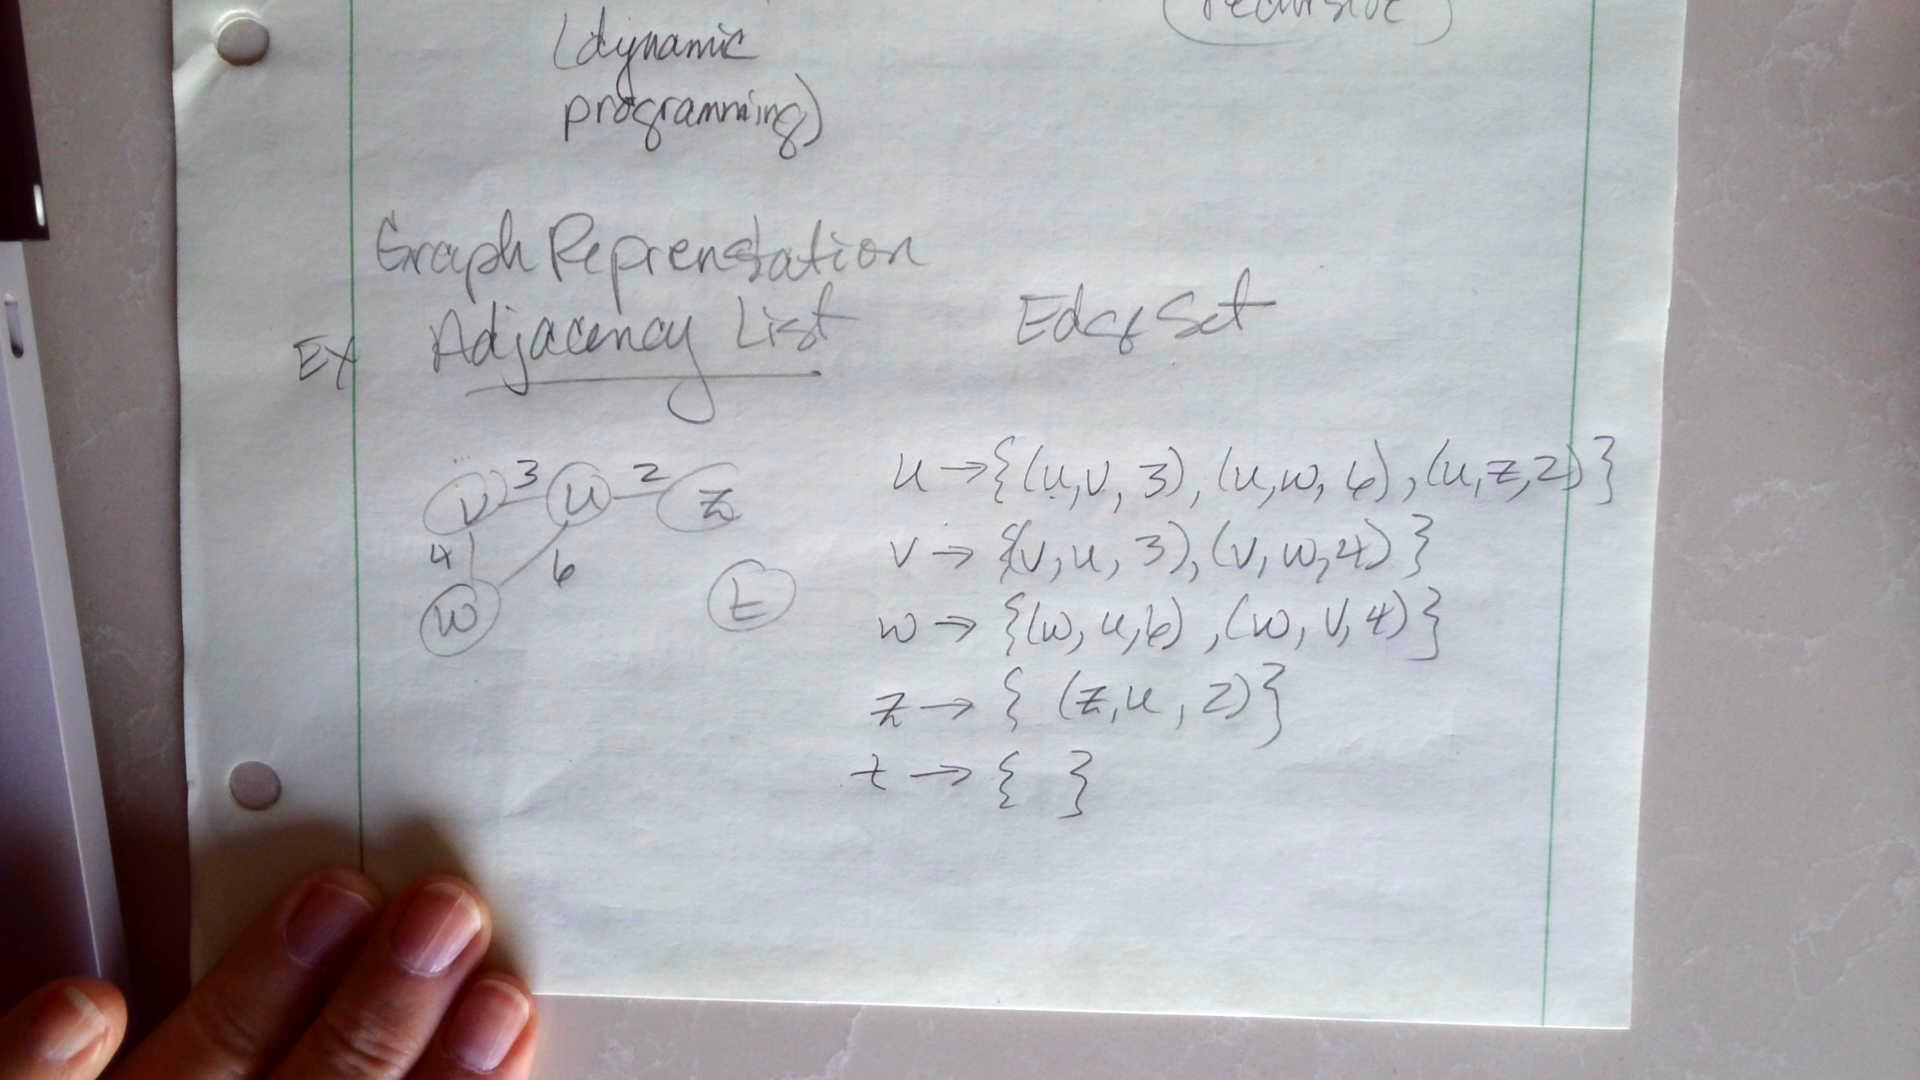 recursive
(dynamic
programming)
Graph Reprenstation
Ex Adjacency List Edge Set
v 3 u 2 z
4 6
w t
u → {(u,v,3), (u,w,6), (u,z,2)}
v → {(v,u,3), (v,w,4)}
w → {(w,u,6), (w,v,4)}
z → { (z,u,2)}
t → { }